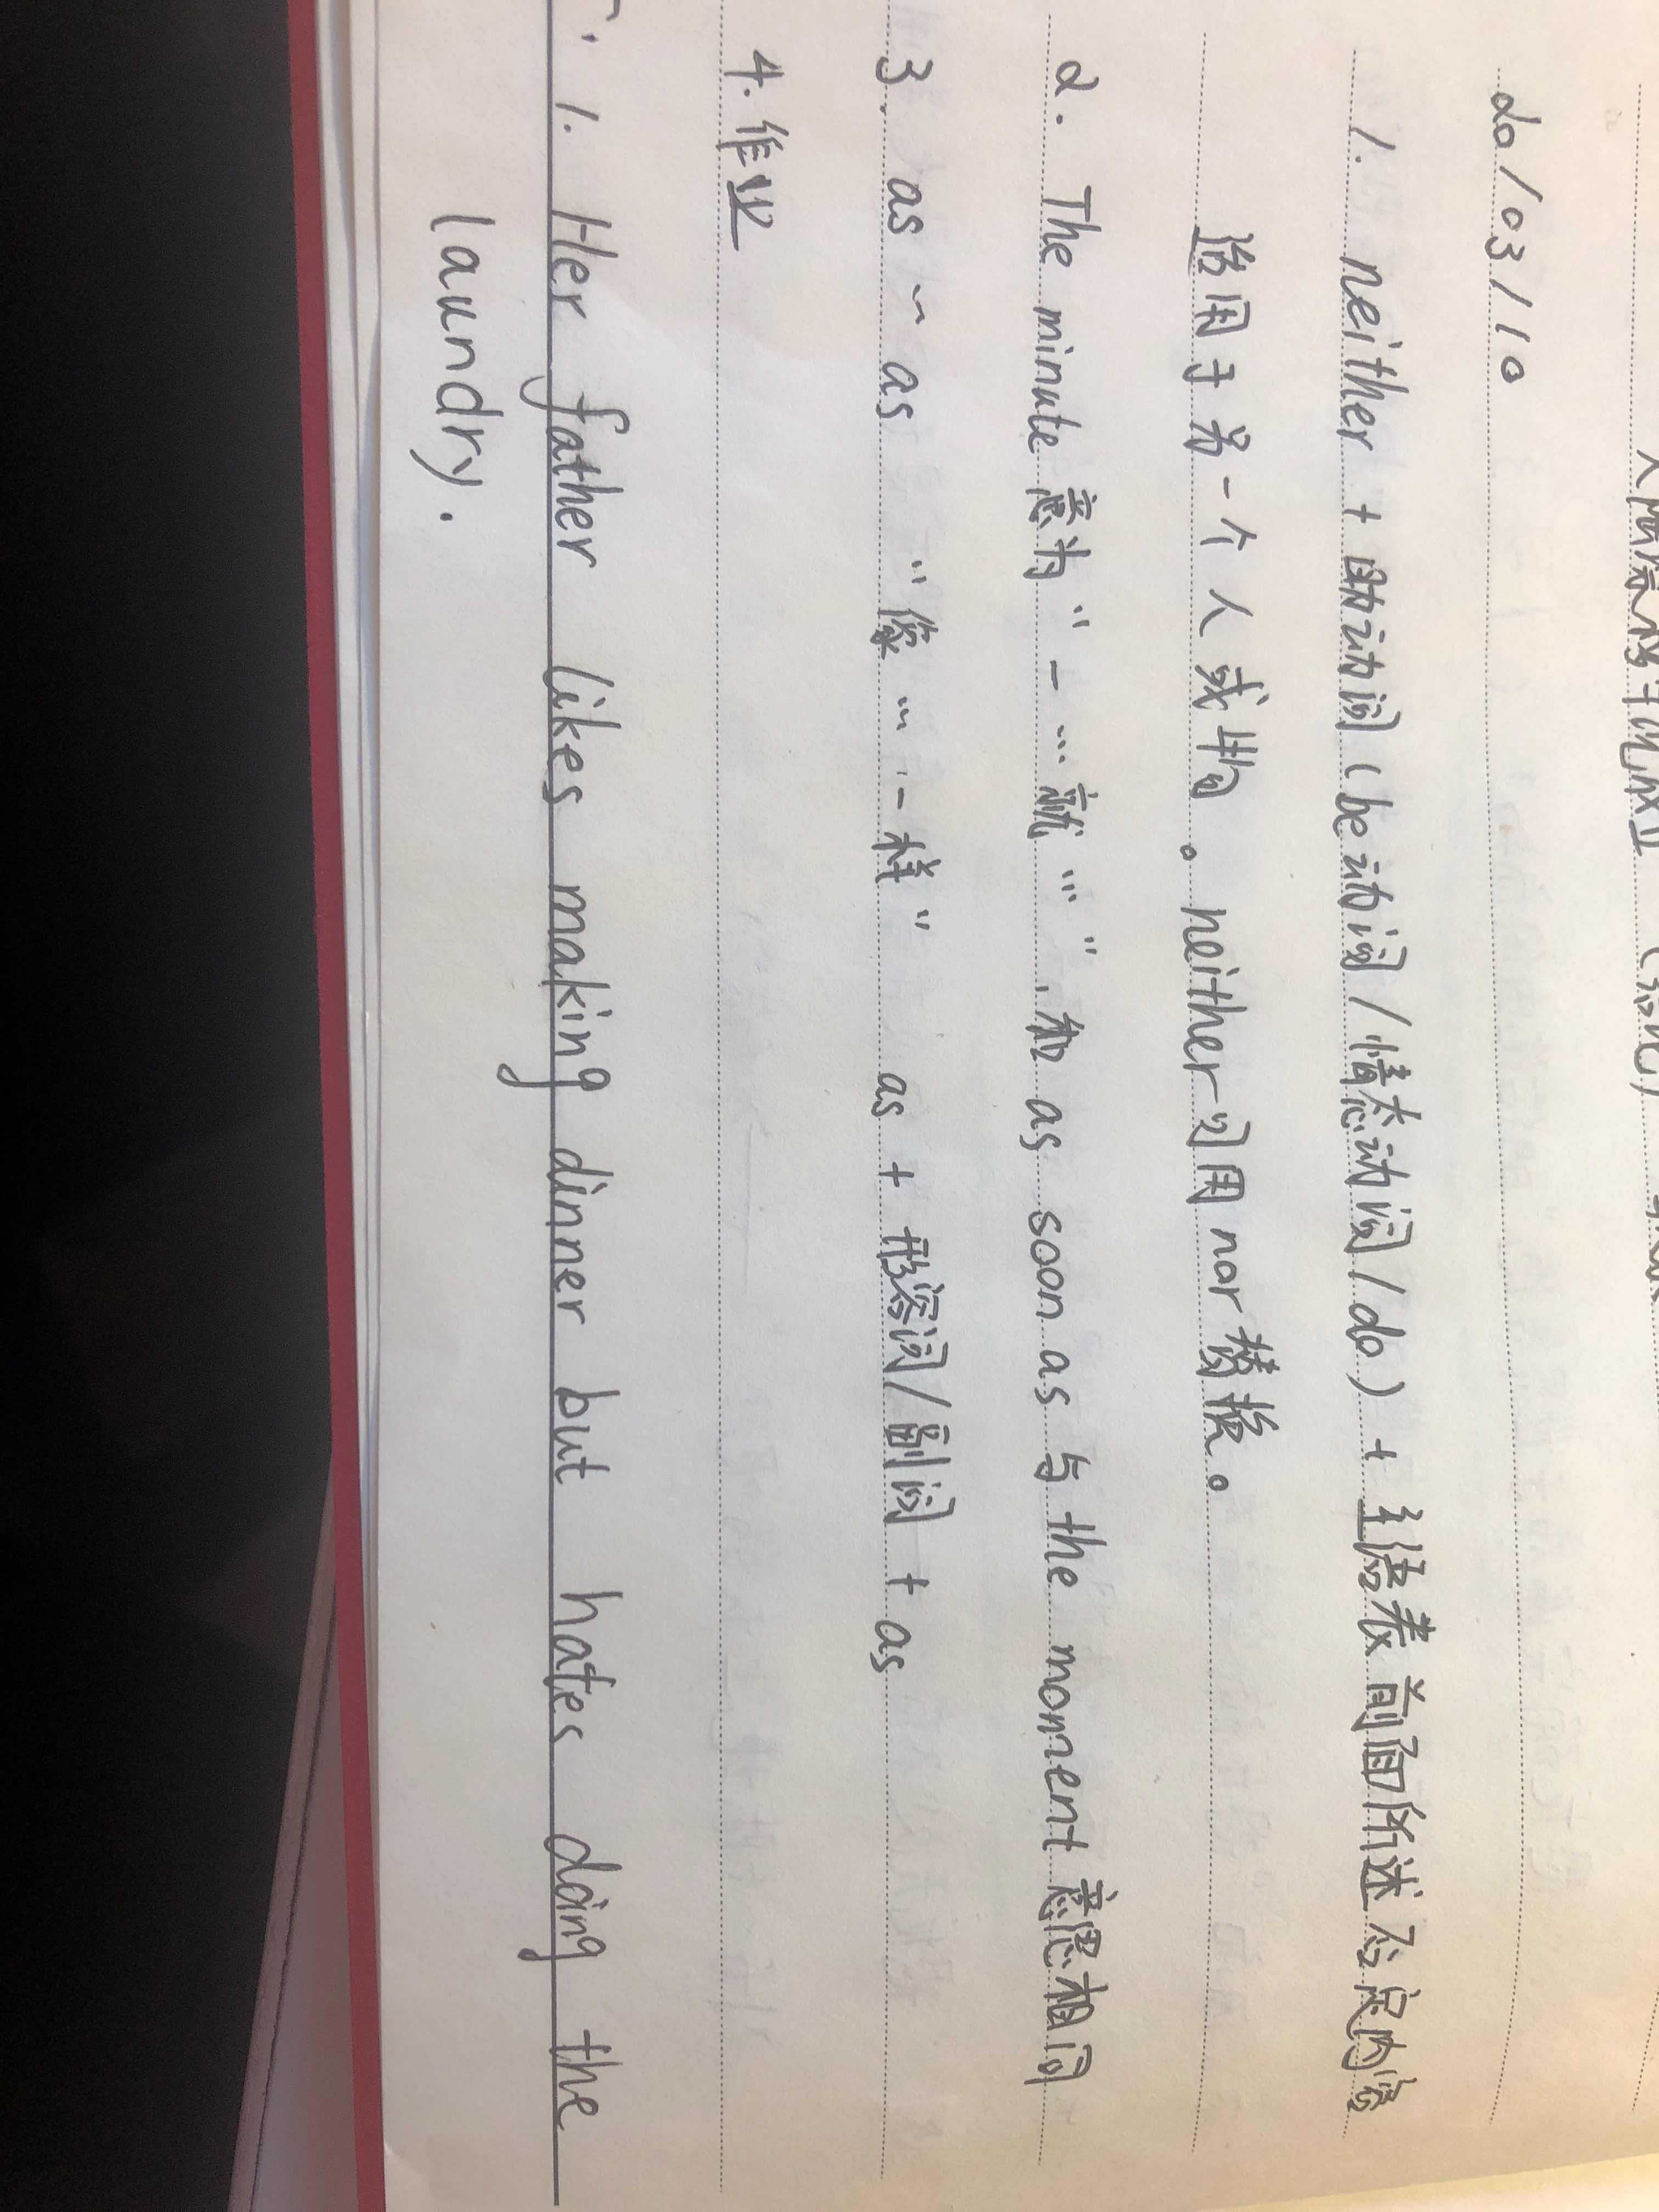 20/03/10
1. neither + 助动词(be动词/情态动词/do) + 主语表前面所述否定内容
始用于另一个人或物。neither可用nor替换。
2. The minute 意为"一…就…",和 as soon as 与 the moment 意思相同
3. as ~ as "像…一样" as + 形容词/副词 + as
4. 作业
1. Her father likes making dinner but hates doing the
laundry.